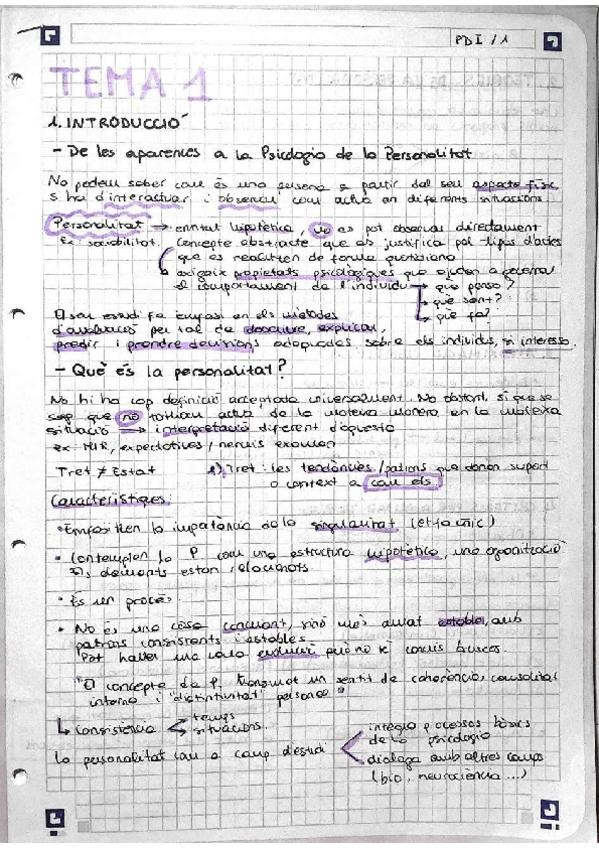 PDI/1
TEMA 1
1. INTRODUCCIÓ
- De les aparences a la Psicologia de la Personalitat
No podem saber com és una persona a partir del seu aspecte físic
s'ha d'interactuar i observar com actua en diferents situacions.
Personalitat → entitat hipotètica, no es pot observar directament
Ex: sociabilitat. Concepte abstracte que es justifica pel tipus d'actes
que es realitzen de forma quotidiana
propietats psicològiques que ajuden a
el comportament de l'individu → que penso?
que sent?
que fa?
El seu estudi fa èmfasi en els mètodes
d'avaluació per tal de descriure, explicar,
predir i prendre decisions adequades sobre els individus, si interessa.
- Què és la personalitat?
No hi ha cap definició acceptada universalment. No obstant, sí que se
sap que no tothom actua de la mateixa manera en la mateixa
situació ⇒ interpretació diferent d'aquesta
ex: MIR, expectatives / nervis examen
Tret ≠ Estat
Tret: les tendències / patrons que donen suport
o context a com ets
Característiques:
• Emfasitzen la importància de la singularitat (ets únic)
• Contemplen la P com una estructura hipotètica, una organització
elements estan relacionats
• És un procés.
• No és una cosa canviant, sinó més aviat estable, amb
patrons consistents i estables
Pot haver una certa evolució però no té canvis bruscos.
"El concepte de P. transmet un sentit de coherència, causalitat
interna i "distintivitat" personal"
↳ Consistència < temps
situacions.
La personalitat com a camp d'estudi < integra processos bàsics
de la psicologia
dialoga amb altres camps
(bio, neurociència...)